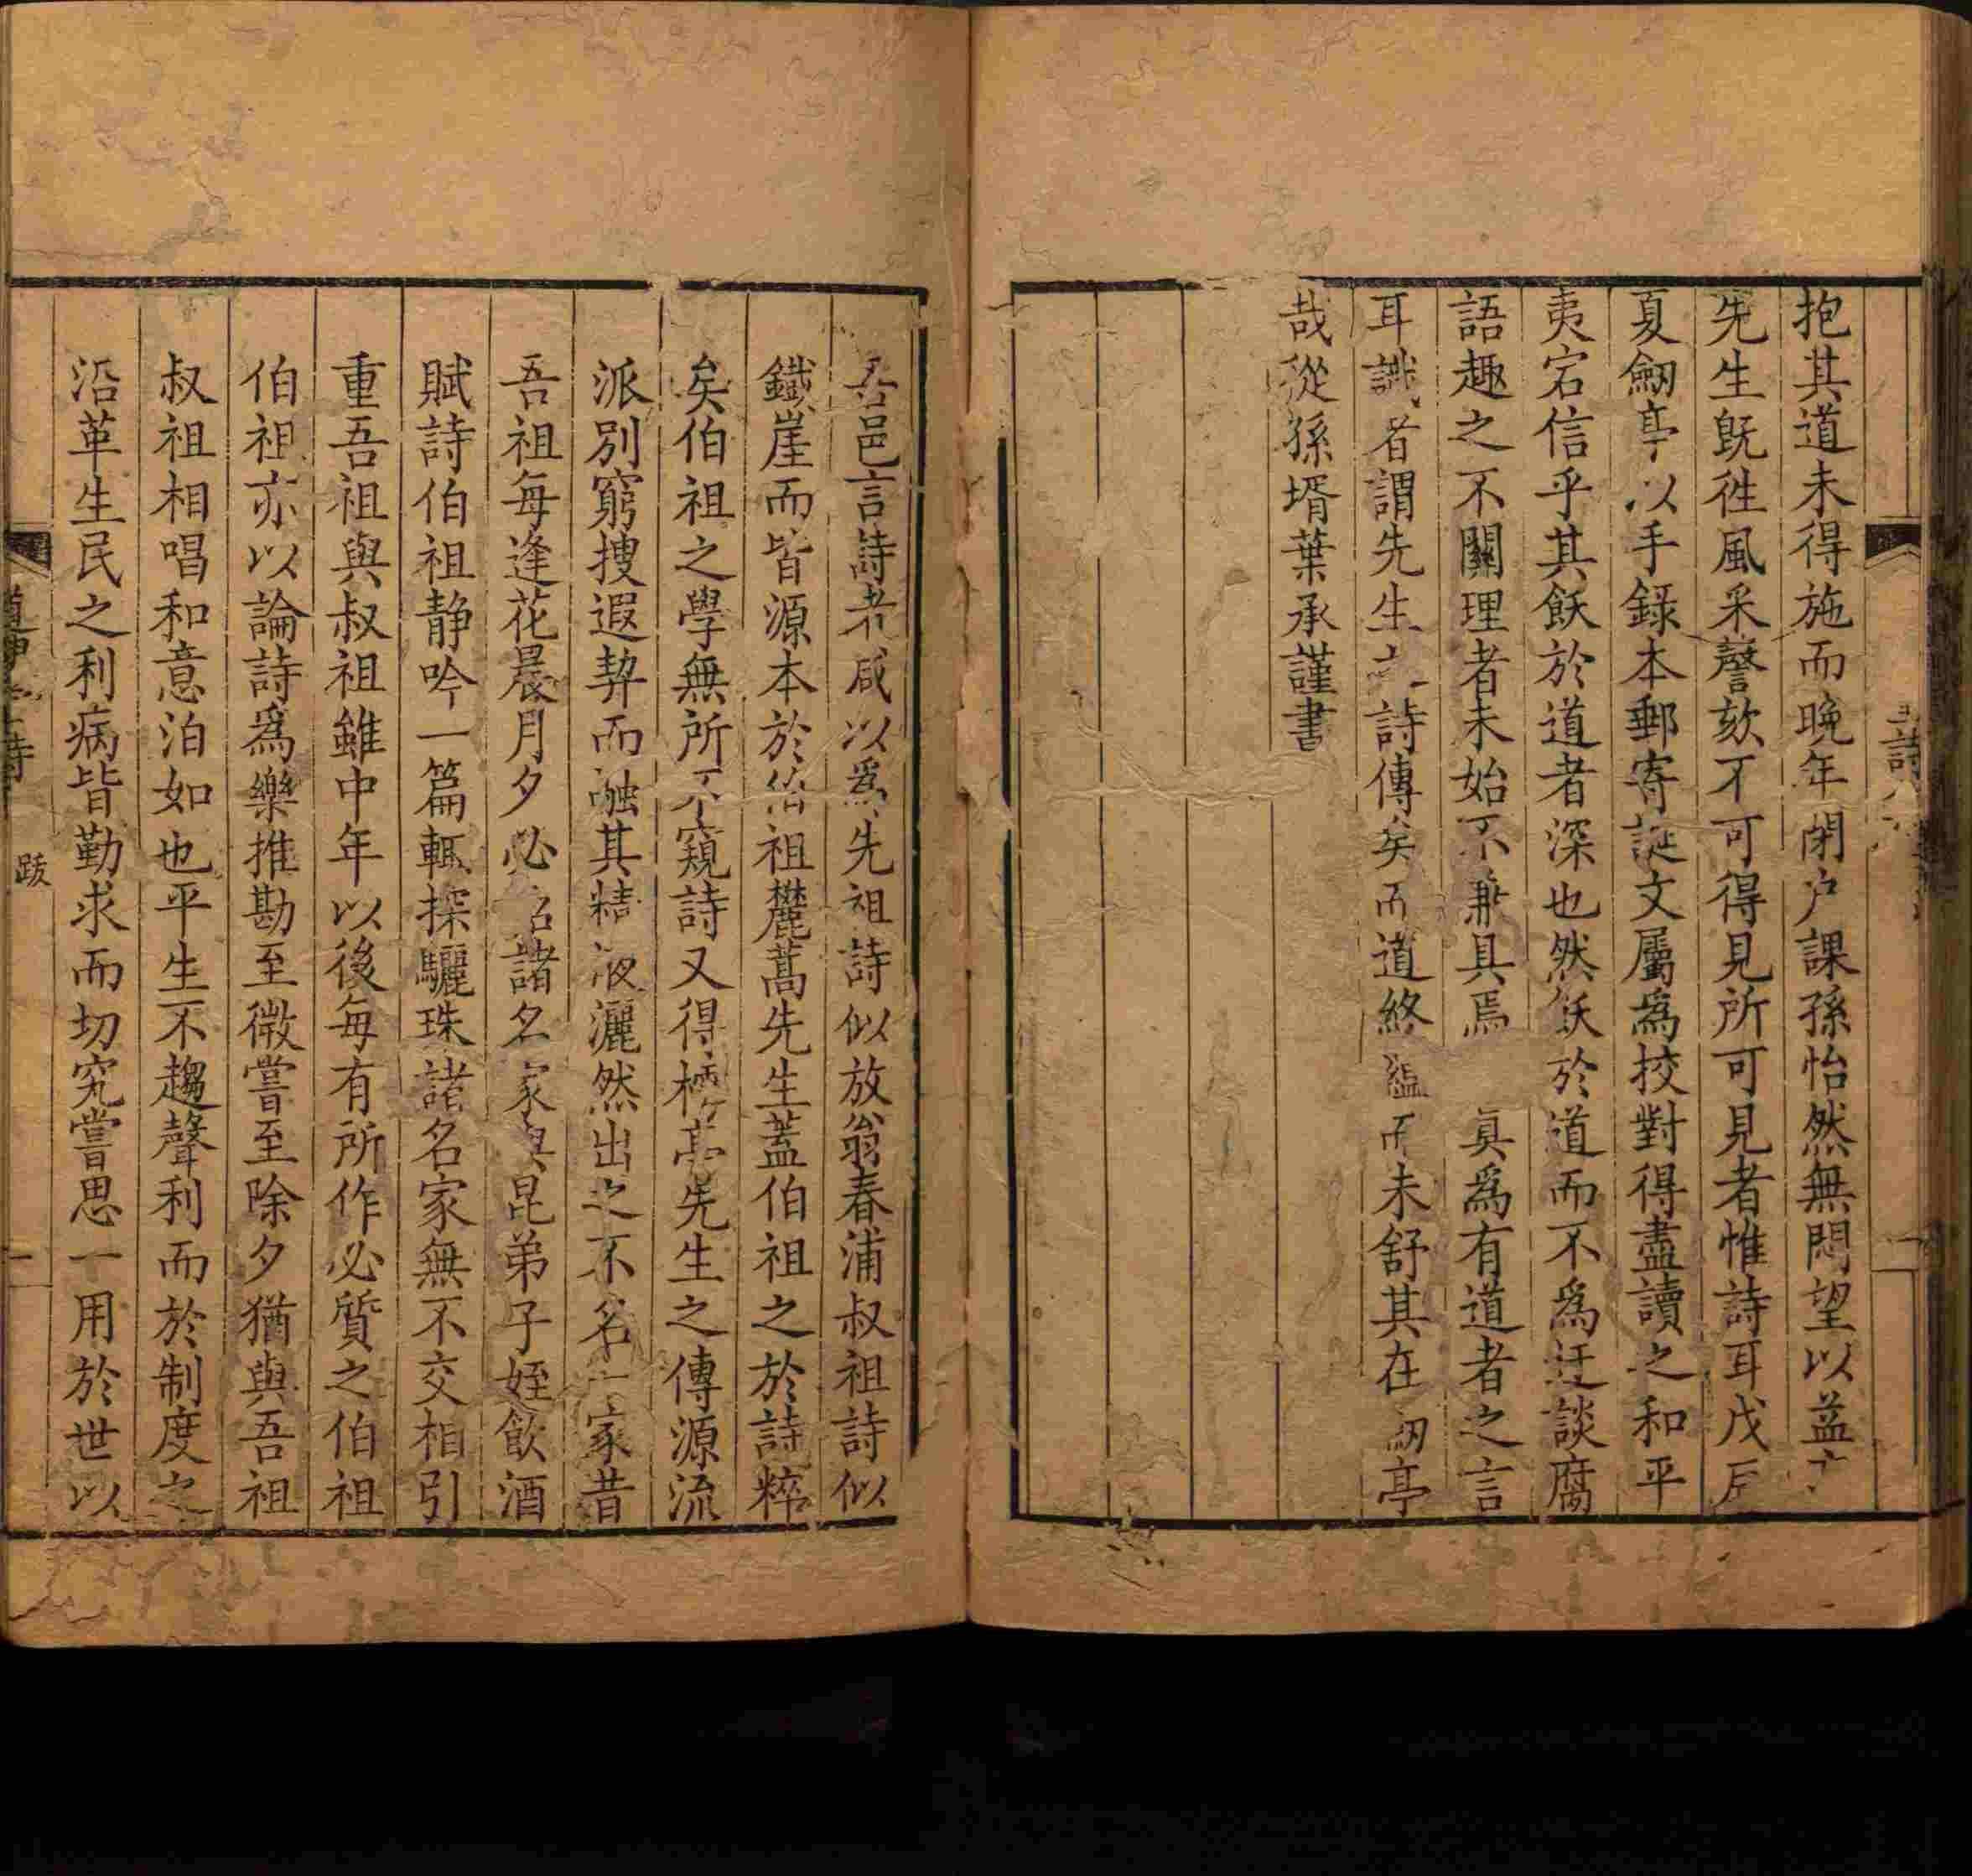 抱其道未得施而晚年閉户課孫怡然無悶望以益
先生旣徃風采謦欬不可得見所可見者惟詩耳戊
夏劒亭以手録本郵寄誕文屬爲挍對得盡讀之和平
夷宕信乎其飫於道者深也然飫於道而不爲迂談腐
語趣之不關理者未始不兼具焉眞爲有道者之言
耳識者謂先生詩傳矣而道終藴而未舒其在劒亭
哉從孫壻葉承謹書
吾邑言詩者咸以爲先祖詩似放翁春浦叔祖詩似
鐵崖而皆源本於伯祖麓蒿先生蓋伯祖之於詩粹
矣伯祖之學無所不窺詩又得樗亭先生之傳源流
派別窮搜遐契而融其精液灑然出之不名一家昔
吾祖每逢花晨月夕必招諸名家與昆弟子姪飲酒
賦詩伯祖静吟一篇輒探驪珠諸名家無不交相引
重吾祖與叔祖雖中年以後每有所作必質之伯祖
伯祖亦以論詩爲樂推勘至微嘗至除夕猶與吾祖
叔祖相唱和意泊如也平生不趨聲利而於制度之
沿革生民之利病皆勤求而切究嘗思一用於世以
跋
一